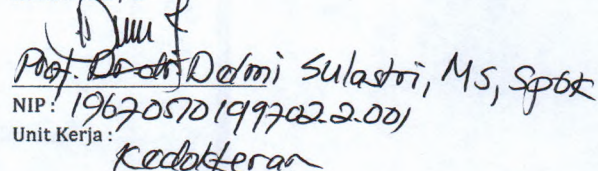 Prof. Dr. dr. Delmi Sulastri, MS, SpGK
NIP : 196705701199702.2.001
Unit Kerja :
Kedokteran